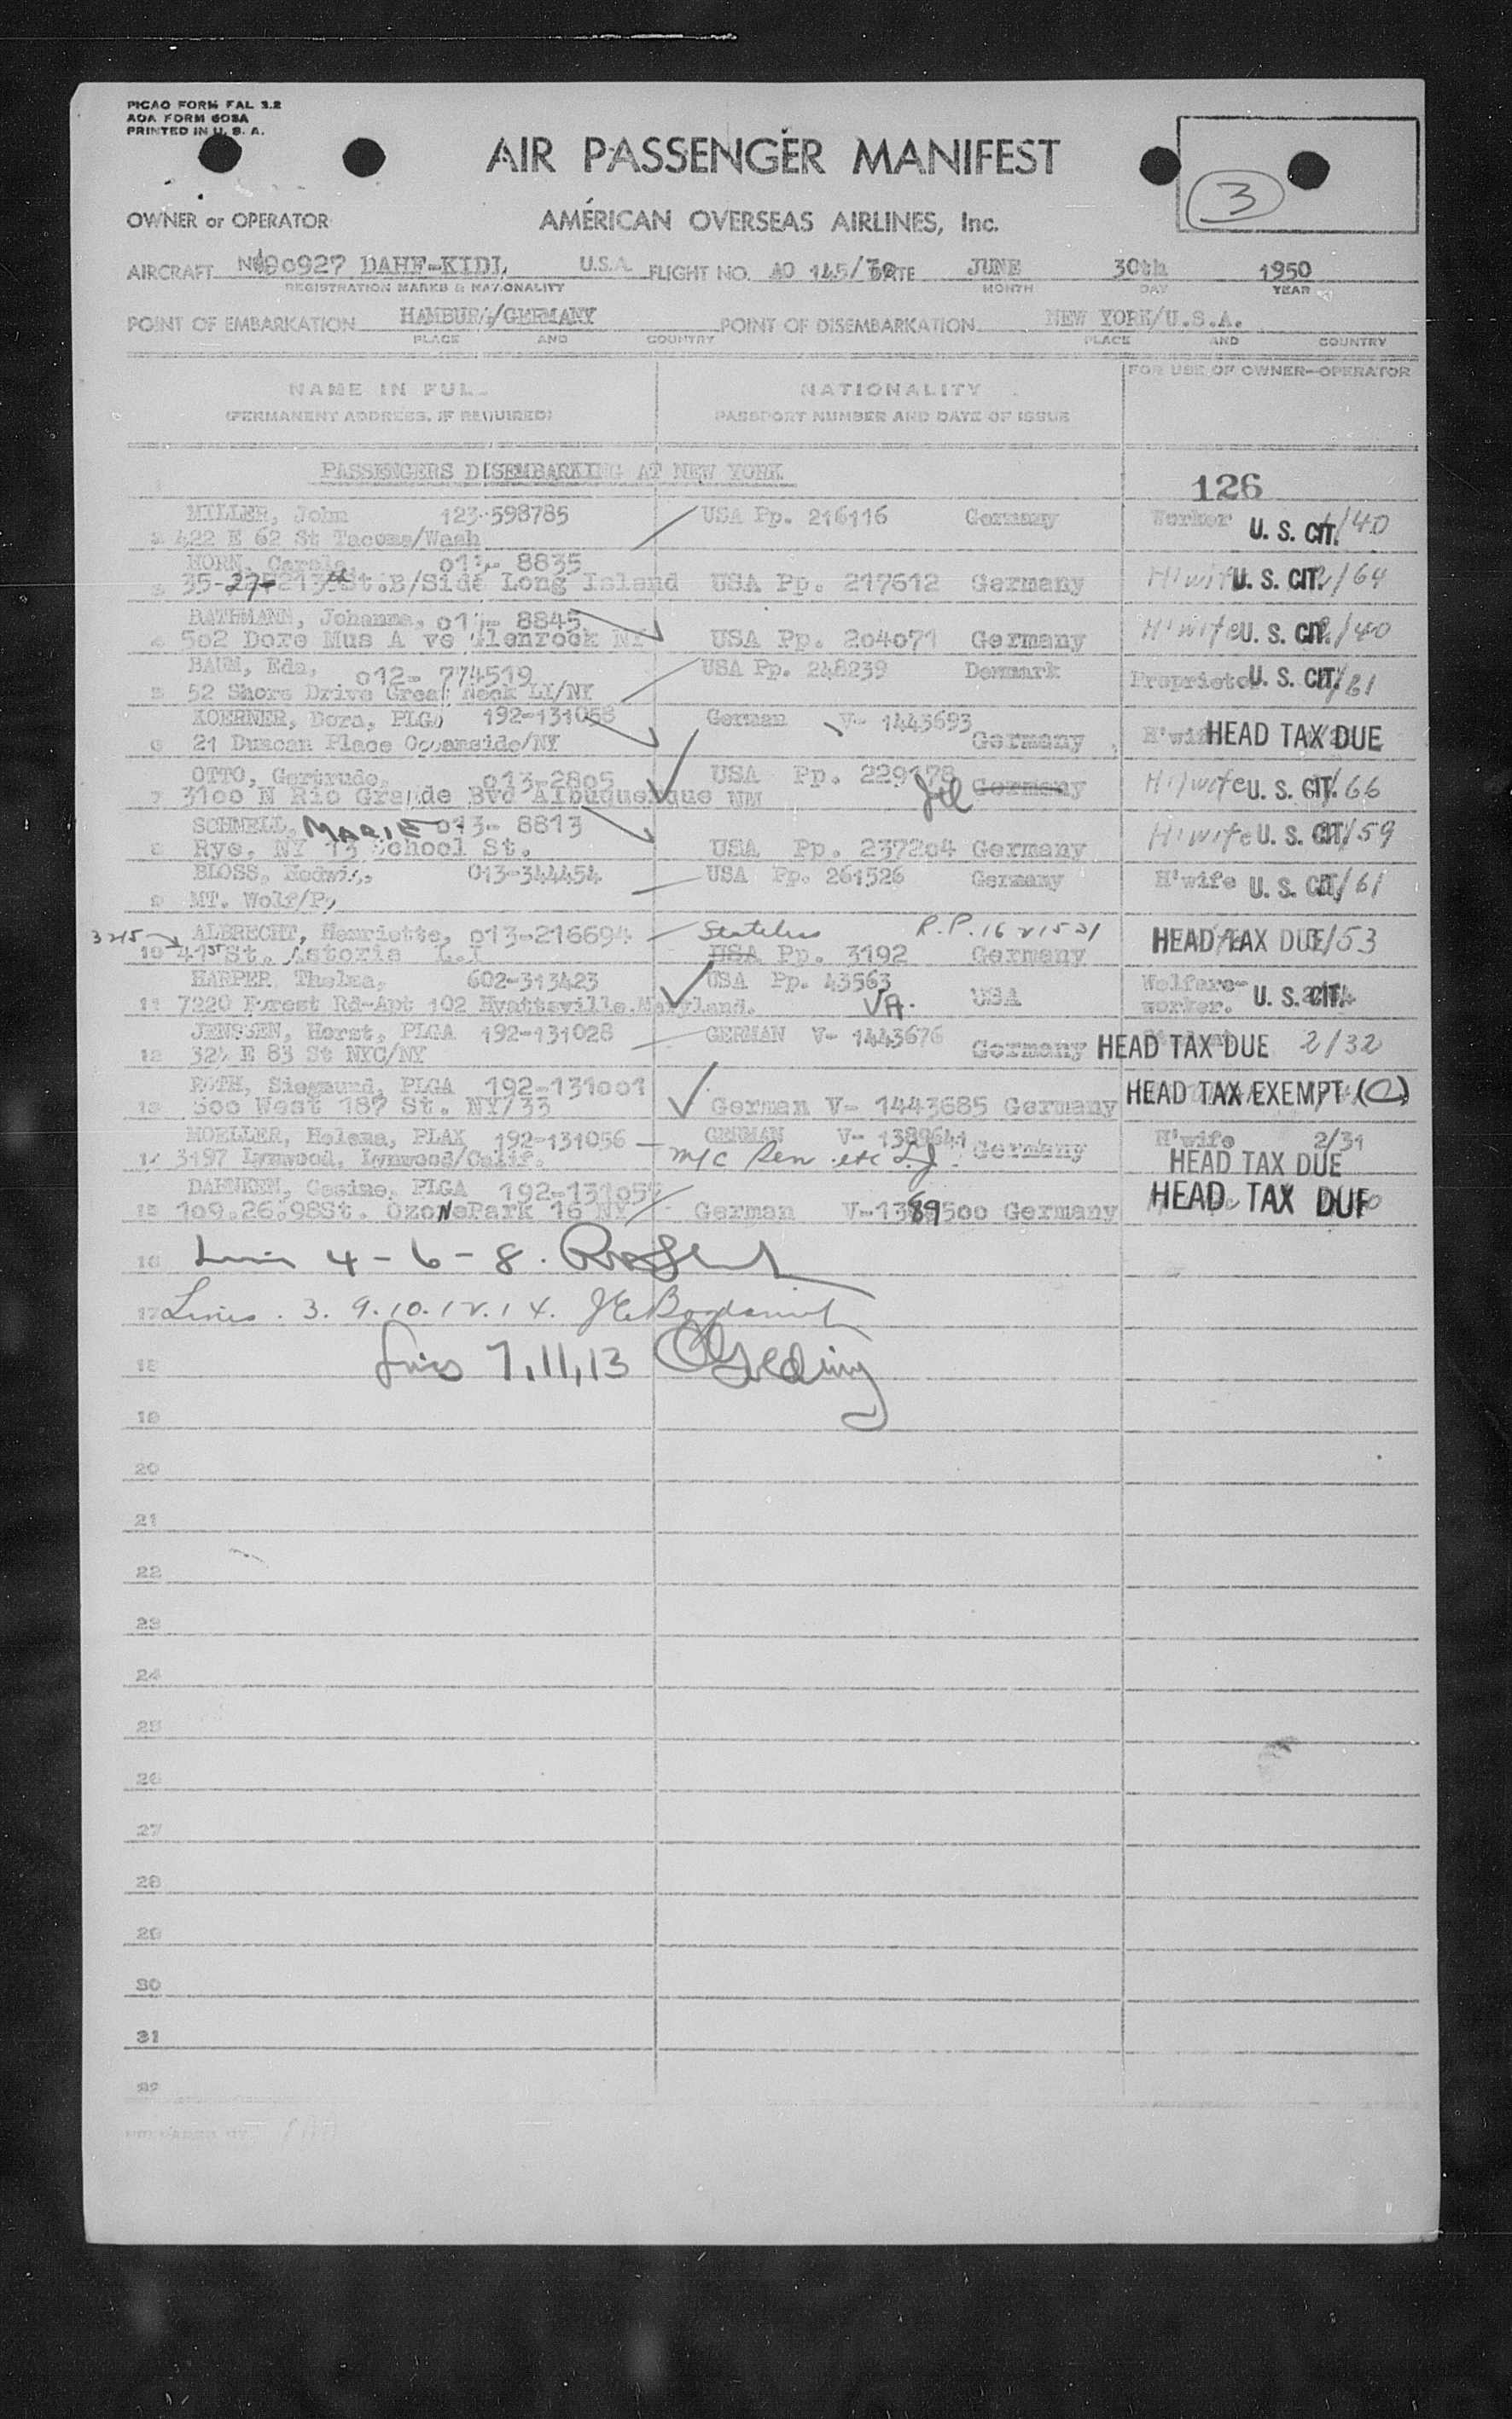 PICAO FORM FAL 3.2
AOA FORM 608A
PRINTED IN U. S. A.
AIR PASSENGER MANIFEST
3
OWNER or OPERATOR
AMERICAN OVERSEAS AIRLINES, Inc.
AIRCRAFT 90927 DAHF-KIDL U.S.A. FLIGHT NO. AO 145/30 DATE JUNE 30th 1950
REGISTRATION MARKS & NATIONALITY MONTH DAY YEAR
POINT OF EMBARKATION HAMBURG/GERMANY POINT OF DISEMBARKATION NEW YORK/U.S.A.
PLACE AND COUNTRY PLACE AND COUNTRY
NAME IN FULL NATIONALITY FOR USE OF OWNER-OPERATOR
(PERMANENT ADDRESS, IF REQUIRED) PASSPORT NUMBER AND DATE OF ISSUE
PASSENGERS DISEMBARKING AT NEW YORK
126
MILLER, John 123-598785 USA Pp. 216116 Germany Worker U. S. CIT. /40
2 422 E 62 St Tacoma/Wash
HORN, Carola, 013- 8835
3 35-27- 213th St.B/Side Long Island USA Pp. 217612 Germany H'wife U. S. CIT. /64
RATHMANN, Johanna, 8845
4 502 Dore Mus A ve Glenrock USA Pp. 204071 Germany H'wife U. S. CIT. /40
BAUM, Eda, 012- 774519 USA Pp. 248239 Denmark Proprietor U. S. CIT. /81
5 52 Shore Drive Great Neck LI/NY
KOERNER, Dora, PLGA 192-131058 German V- 1443693
6 21 Duncan Place Oceanside/NY Germany H'wife HEAD TAX DUE
OTTO, Gertrude, 013-2805 USA Pp. 229178 Germany H'wife U. S. CIT. 66
7 3100 N Rio Grande Bvd Albuquerque NM
SCHNELL, MARIE 013- 8813 H'wife U. S. CIT. /59
8 Rye, NY 13 School St. USA Pp. 237204 Germany
BLOSS, Hedwig, 013-344454 USA Pp. 261526 Germany H'wife U. S. CIT. /61
9 MT. Wolf/Pa
3215 ALBRECHT, Henriette, 013-216694 Stateless R.P. HEAD TAX DUE /53
10 41st St. Astoria L.I USA Pp. 3192 Germany
HARPER Thelma, 602-313423 USA Pp. 43563 USA Welfare-
11 7220 Forest Rd-Apt 102 Hyattsville.Maryland. worker. U. S. CIT.
JENSSEN, Horst, PLGA 192-131028 GERMAN V- 1443676 Germany HEAD TAX DUE 2/32
12 E 83 St NYC/NY
ROTH, Siegmund, PLGA 192-131001 HEAD TAX EXEMPT (C)
13 500 West 187 St. NY/33 German V- 1443685 Germany
MOELLER, Helena, PLAX 192-131056 GERMAN V- Germany H'wife 2/31
14 3197 Lynwood, Lynwood/Calif. HEAD TAX DUE
DAHNKEN, Gesine, PLGA 192-131057 HEAD TAX DUE
15 109.26.98St. OzoNePark 16 NY German V-1389500 Germany
16 4 - 6 - 8.
17 Lines . 3. 9. 10. 12. 14.
18 Lines 7, 11, 13
19
20
21
22
23
24
25
26
27
28
29
30
31
32
PREPARED BY